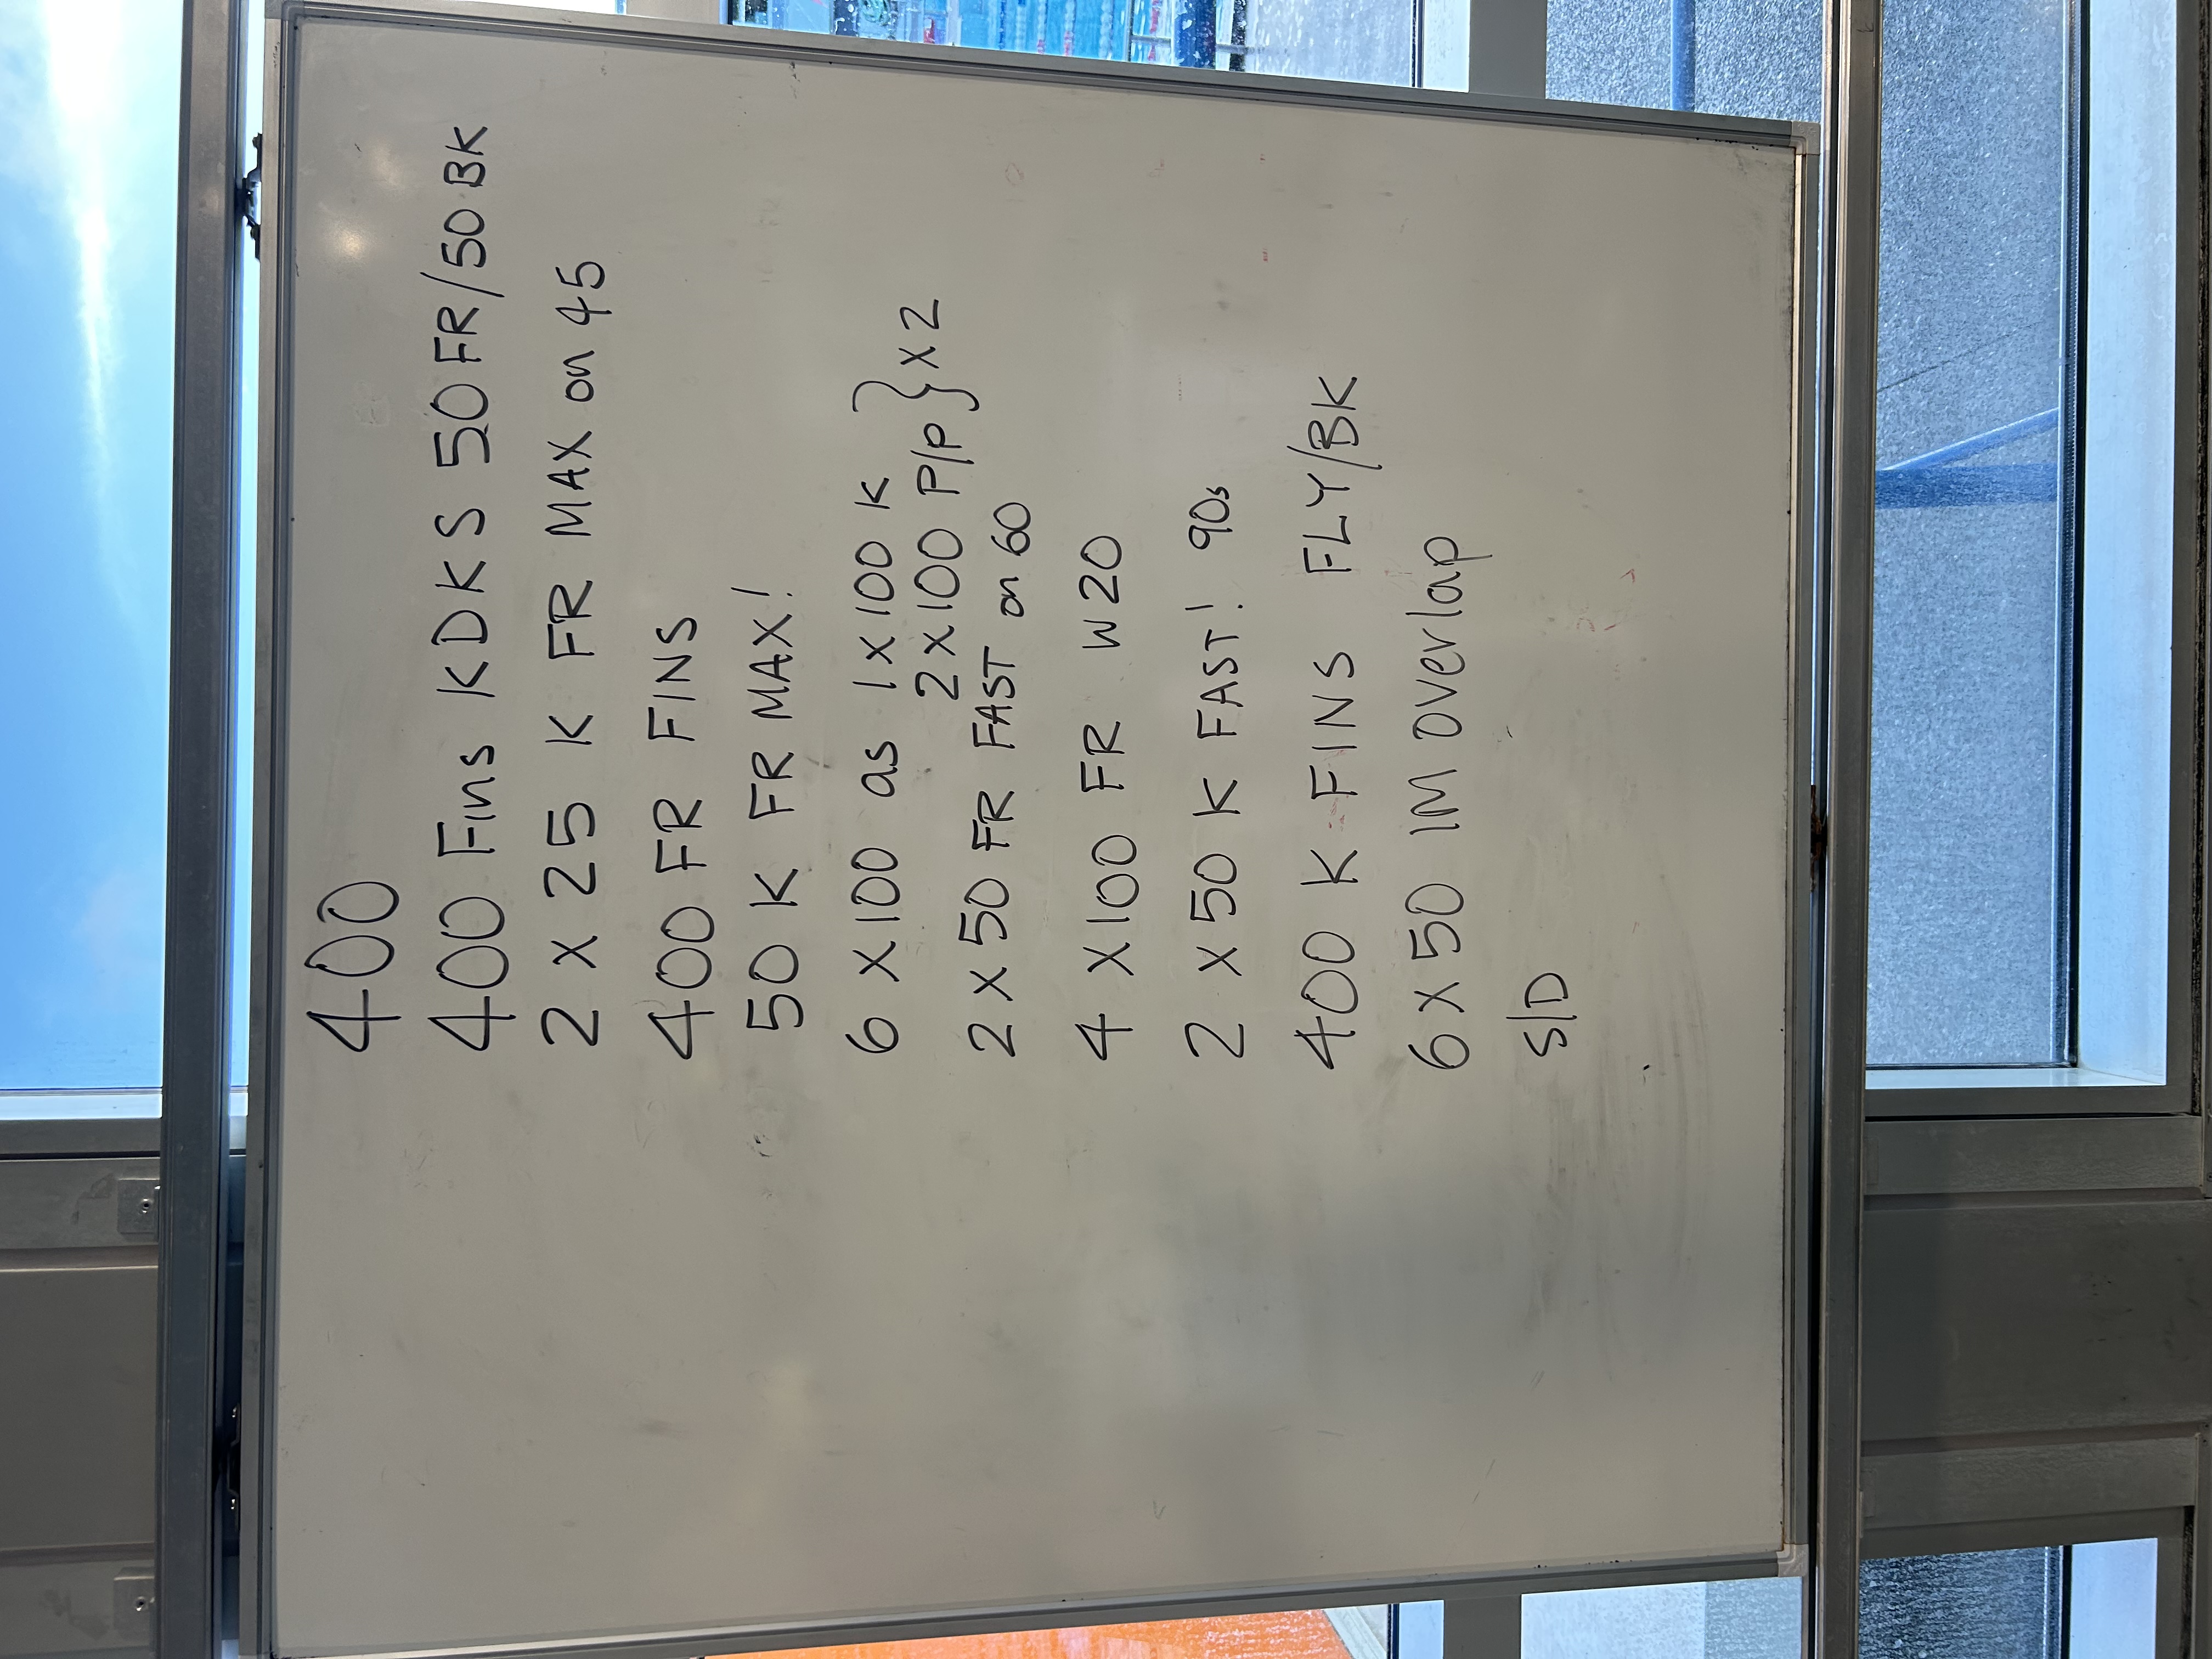 400
400 Fins KDKS 50 FR/50 BK
2 X 25 K FR MAX on 45
400 FR FINS
50 K FR MAX!
6 X 100 as 1 X 100 K
2 X 100 P/P } X 2
2 X 50 FR FAST on 60
4 X 100 FR W20
2 X 50 K FAST! 90s
400 K FINS FLY/BK
6 X 50 IM overlap
S/D